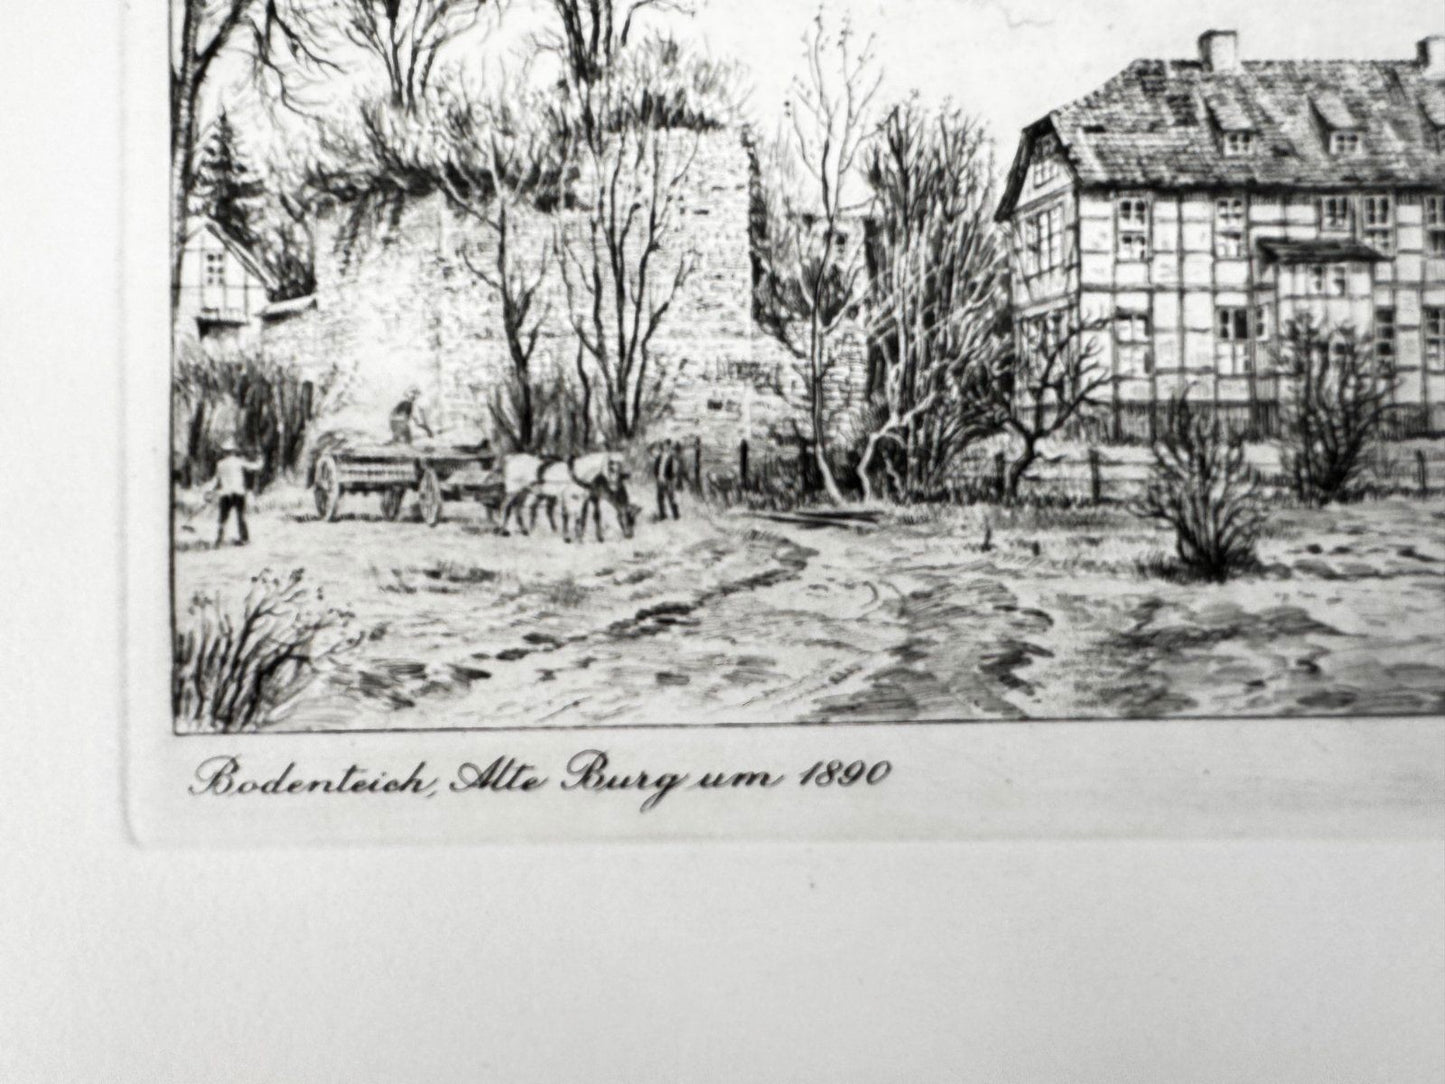 Bodenteich, Alte Burg um 1890